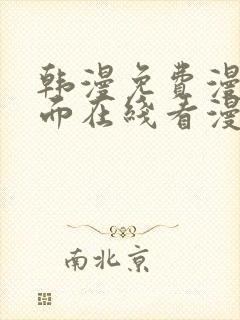 韩漫免费漫
而在线看漫
南北京